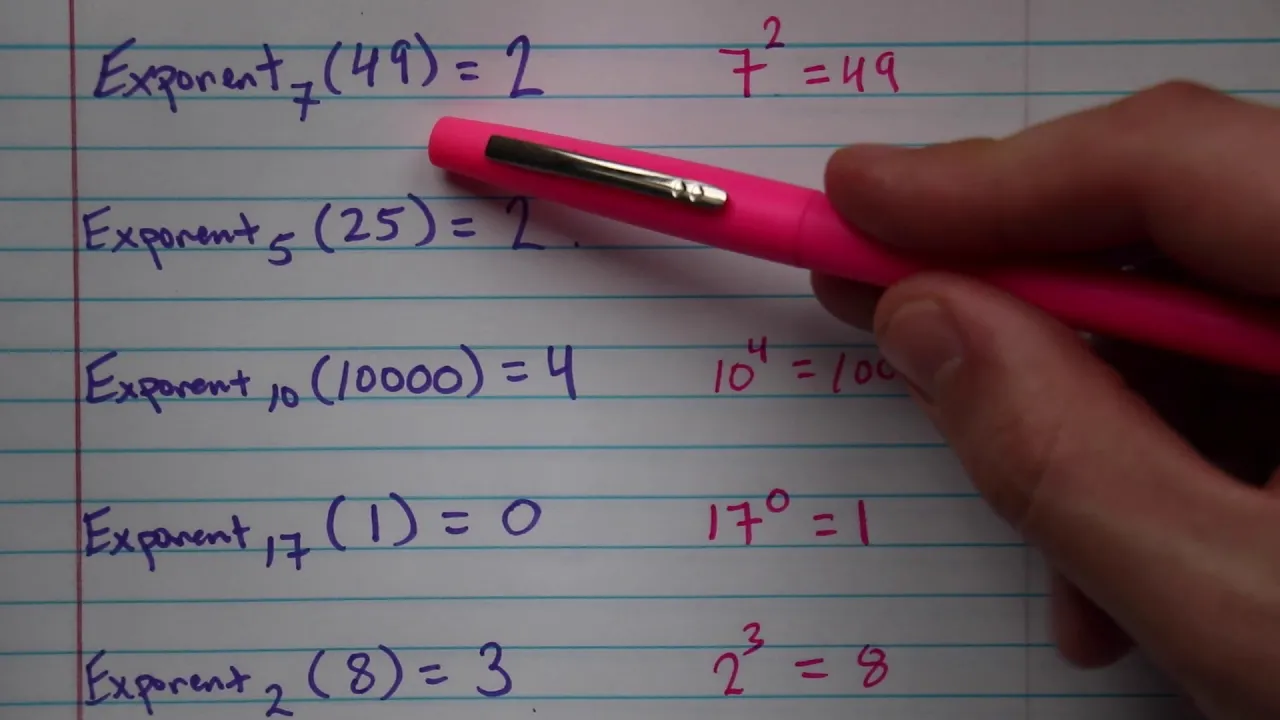 Exponent₇(49) = 2 7² = 49
Exponent₅(25) = 2
Exponent₁₀(10000) = 4 10⁴ = 100
Exponent₁₇(1) = 0 17⁰ = 1
Exponent₂(8) = 3 2³ = 8